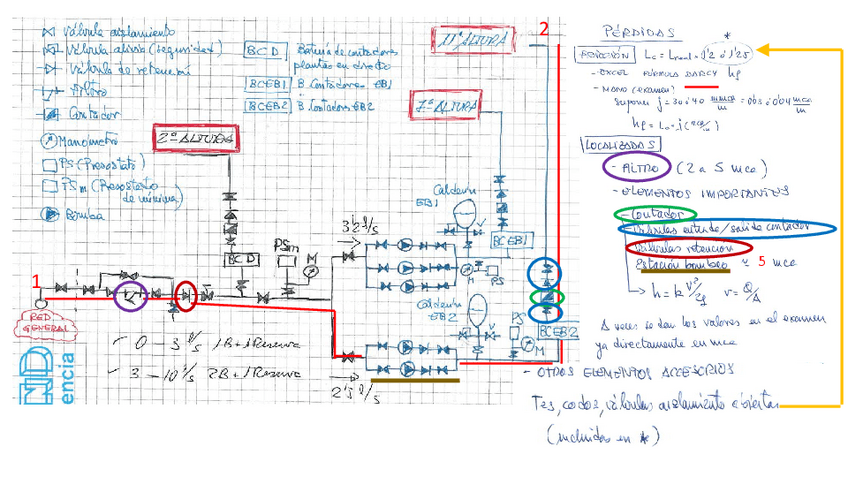 Válvula aislamiento
Válvula alivio (seguridad)
Válvula de retención
Filtro
Contador
Manómetro
PS (Presostato)
PSm (Presostato
de mínima)
Bomba
BCD
Batería de contadores
plantas en directo
BCEB1 B Contadores EB1
BCEB2 B Contadores EB2
11ª ALTURA
7ª ALTURA
2ª ALTURA
2
1
Calderín
EB1
PSm
M
BCD
3'2 l/s
V
BCEB1
M
PS
Calderín
EB2
V
PS
M
BCEB2
RED
GENERAL
0 – 3 l/s 1B + 1 Reserva
3 – 10 l/s 2B + 1 Reserva
2'5 l/s
ND
encia
PÉRDIDAS
*
FRICCIÓN Lc = Lreal · 1'2 ó 1'25
- EXCEL FÓRMULA DARCY hf
- MANO (examen)
Suponer j = 30 ó 40 mmca/m = 0'03 ó 0'04 mca/m
hf = Lc · j (mca/m)
LOCALIZADAS
- FILTRO (2 a 5 mca)
- ELEMENTOS IMPORTANTES
- Contador
Válvulas entrada/salida contador
Válvulas retención
Estación bombeo ~ 5 mca
h = k V²/2g v = Q/A
A veces se dan los valores en el examen
ya directamente en mca
- OTROS ELEMENTOS ACCESORIOS
Tes, codos, válvulas aislamiento abiertas
(incluidos en *)